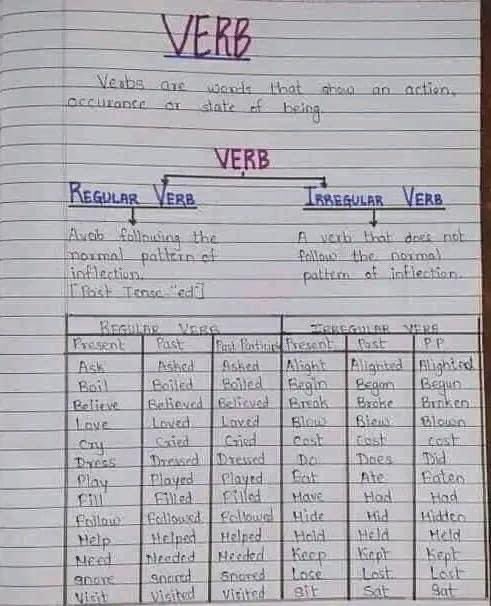 VERB
Verbs are words that show an action,
occurance or state of being.
VERB
REGULAR VERB IRREGULAR VERB
A verb following the A verb that does not
normal pattern of follow the normal
inflection. pattern of inflection.
[Past Tense-"ed"]
REGULAR VERB IRREGULAR VERB
Present Past Past Participle Present Past P.P
Ask Asked Asked Alight Alighted Alighted
Boil Boiled Boiled Begin Began Begun
Believe Believed Believed Break Broke Broken
Love Loved Loved Blow Blew Blown
Cry Cried Cried Cost Cost Cost
Dress Dressed Dressed Do Does Did
Play Played Played Eat Ate Eaten
Fill Filled Filled Have Had Had
Follow Followed Followed Hide Hid Hidden
Help Helped Helped Hold Held Held
Need Needed Needed Keep Kept Kept
Snore Snored Snored Lose Lost Lost
Visit Visited Visited Sit Sat Sat